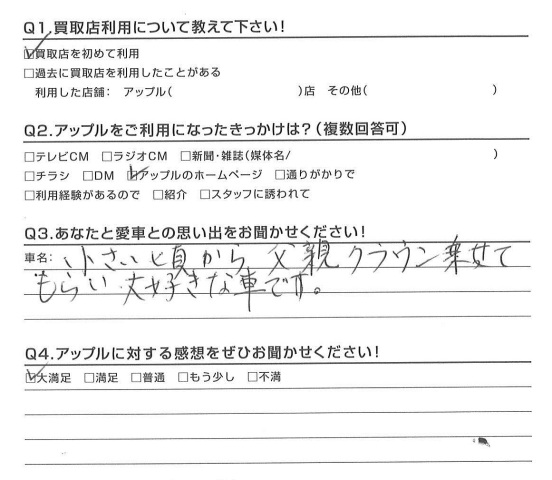 Q1.買取店利用について教えて下さい!
☑買取店を初めて利用
□過去に買取店を利用したことがある
利用した店舗： アップル( )店 その他( )
Q2.アップルをご利用になったきっかけは?(複数回答可)
□テレビCM □ラジオCM □新聞・雑誌(媒体名/ )
□チラシ □DM ☑アップルのホームページ □通りがかりで
□利用経験があるので □紹介 □スタッフに誘われて
Q3.あなたと愛車との思い出をお聞かせください!
車名: 小さい頃から、父親クラウン乗せて
もらい、大好きな車です。
Q4.アップルに対する感想をぜひお聞かせください!
☑大満足 □満足 □普通 □もう少し □不満